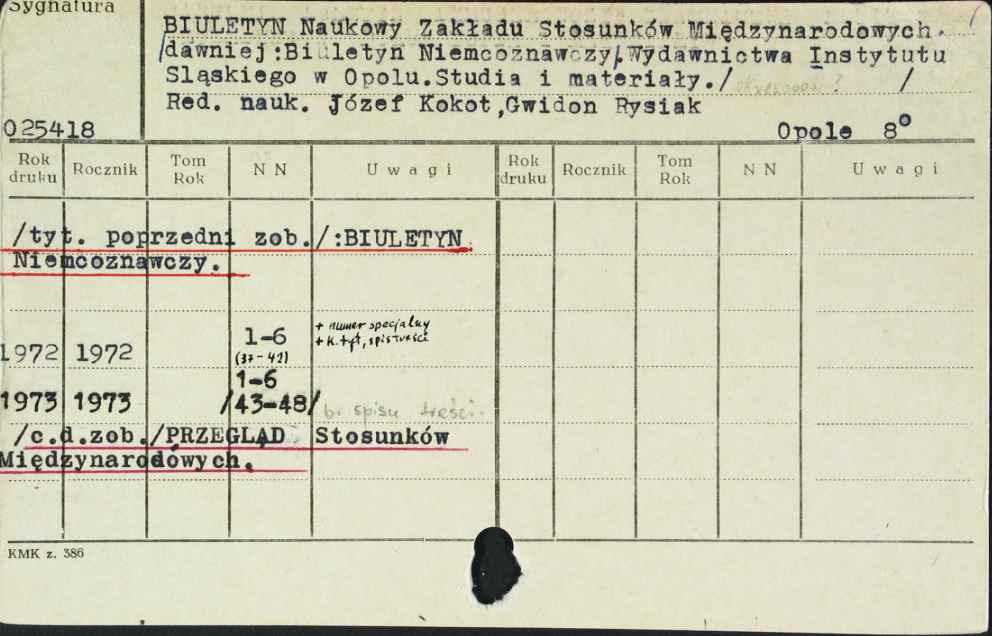 Sygnatura
BIULETYN Naukowy Zakładu Stosunków Międzynarodowych.
/dawniej:Biuletyn Niemcoznawczy/.Wydawnictwa Instytutu
Sląskiego w Opolu.Studia i materiały./ /
Red. nauk. Józef Kokot,Gwidon Rysiak
025418 Opole 8°
Rok druku Rocznik Tom Rok N N Uwagi Rok druku Rocznik Tom Rok N N Uwagi
/tyt. poprzedni zob./:BIULETYN
Niemcoznawczy.
1972 1972 1-6 + numer specjalny
(37-42) + k. tyt, spis treści
1-6
1973 1973 /43-48/ br spisu treści.
/c.d.zob./PRZEGLĄD Stosunków
Międzynarodówych.
KMK z. 386